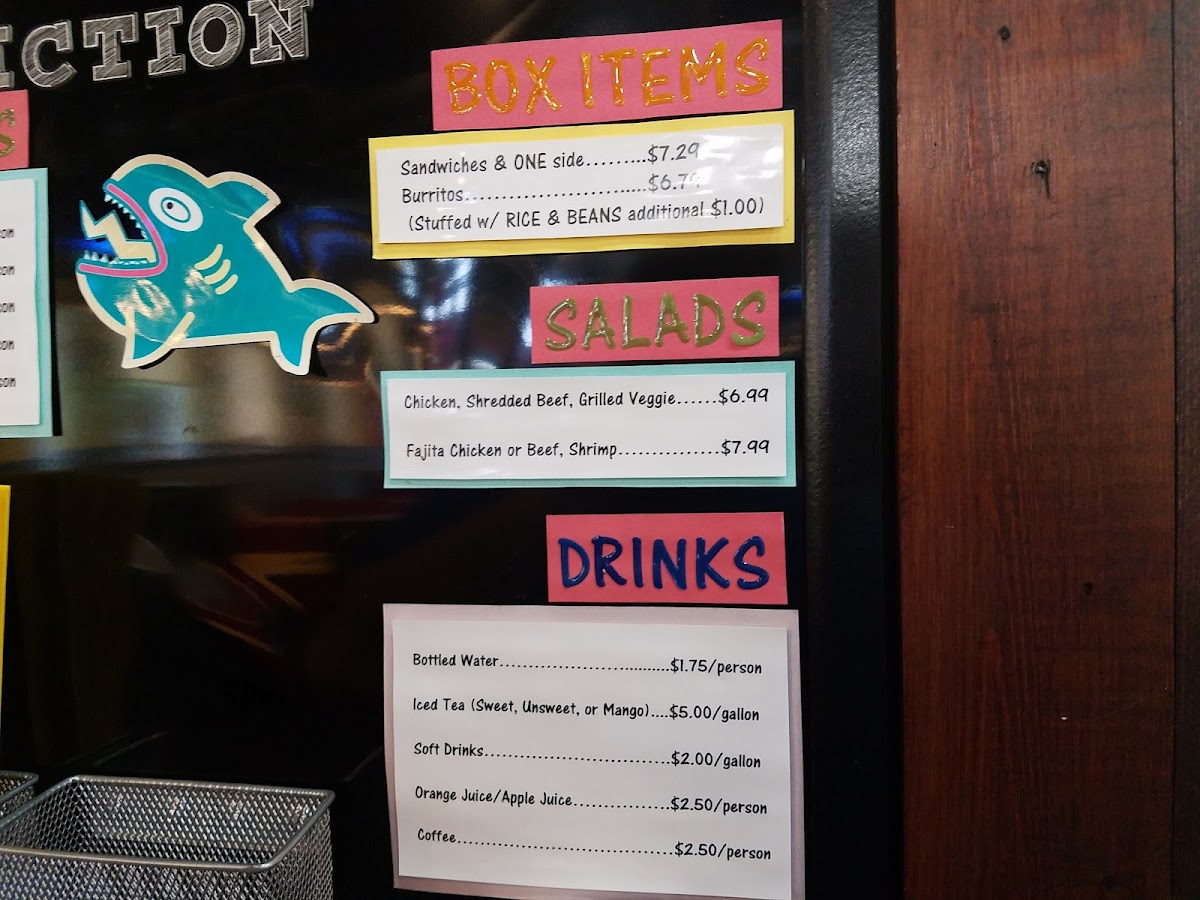 ICTION
BOX ITEMS
Sandwiches & ONE side.........$7.29
Burritos............................$6.79
(Stuffed w/ RICE & BEANS additional $1.00)
SALADS
Chicken, Shredded Beef, Grilled Veggie......$6.99
Fajita Chicken or Beef, Shrimp...............$7.99
DRINKS
Bottled Water...............................$1.75/person
Iced Tea (Sweet, Unsweet, or Mango)....$5.00/gallon
Soft Drinks..............................$2.00/gallon
Orange Juice/Apple Juice...............$2.50/person
Coffee...................................$2.50/person